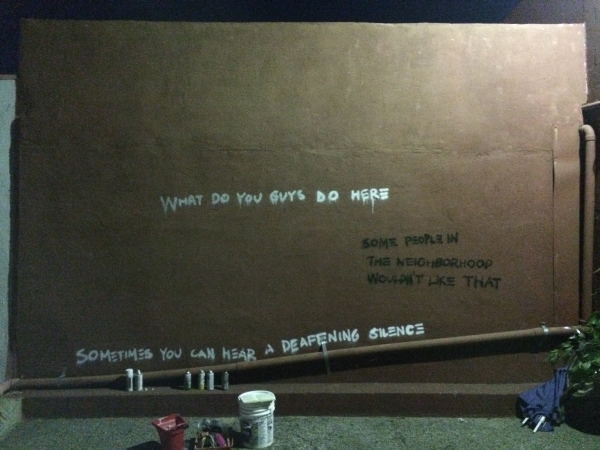 WHAT DO YOU GUYS DO HERE
SOME PEOPLE IN
THE NEIGHBORHOOD
WOULDN'T LIKE THAT
SOMETIMES YOU CAN HEAR A DEAFENING SILENCE